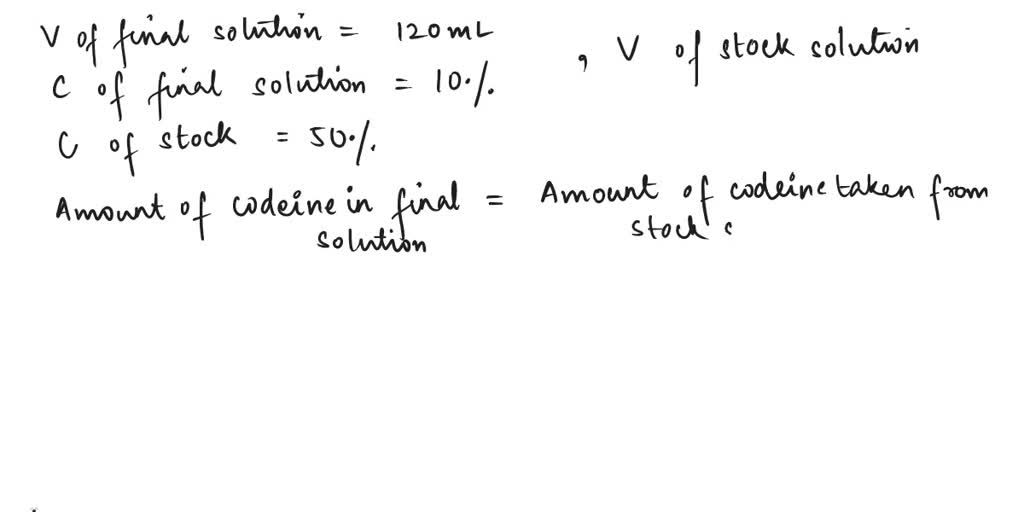 V of final solution = 120mL , V of stock solution
C of final solution = 10%.
C of stock = 50%.
Amount of codeine in final solution = Amount of codeine taken from stock